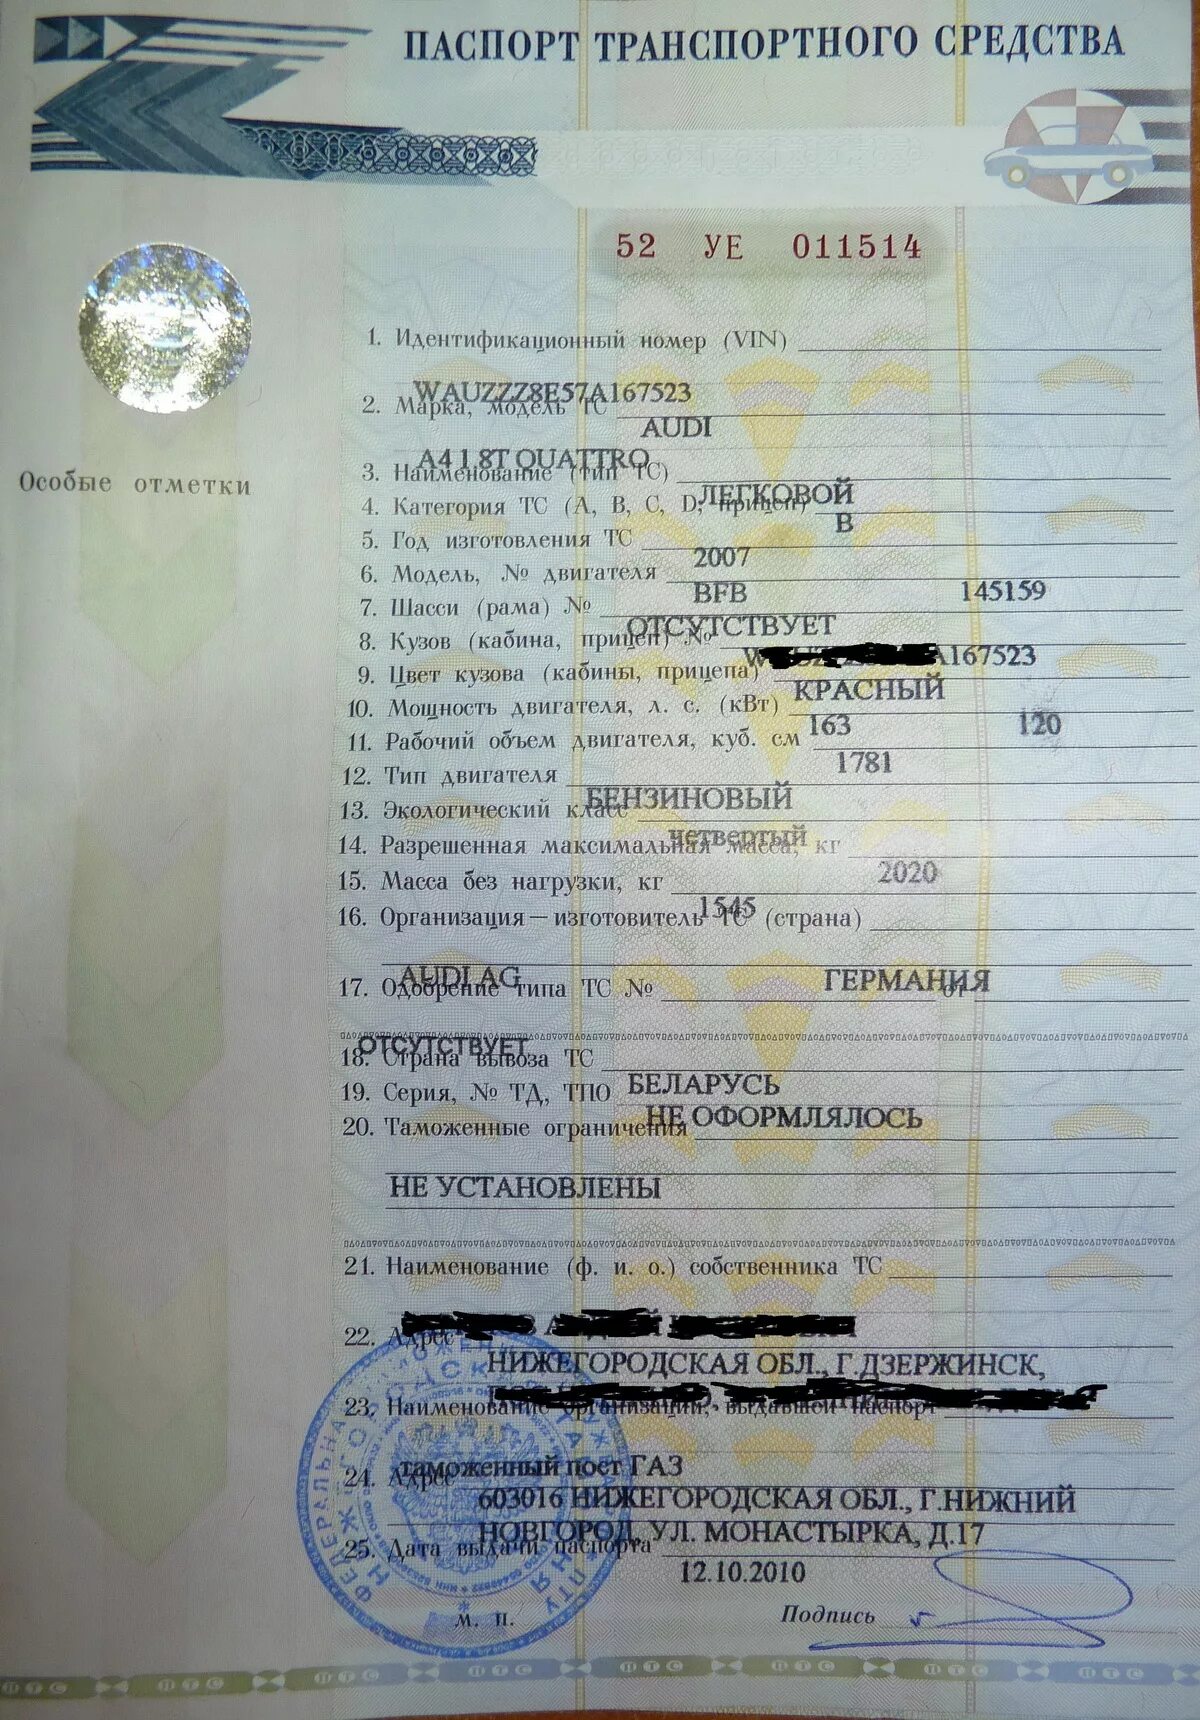 ПАСПОРТ ТРАНСПОРТНОГО СРЕДСТВА
52 УЕ 011514
Особые отметки
1. Идентификационный номер (VIN)
WAUZZZ8E57A167523
2. Марка, модель ТС
AUDI
A4 1.8T QUATTRO
3. Наименование (тип ТС)
ЛЕГКОВОЙ
4. Категория ТС (A, B, C, D, прицеп)
B
5. Год изготовления ТС
2007
6. Модель, № двигателя
BFB 145159
7. Шасси (рама) №
ОТСУТСТВУЕТ
8. Кузов (кабина, прицеп) №
A167523
9. Цвет кузова (кабины, прицепа)
КРАСНЫЙ
10. Мощность двигателя, л. с. (кВт)
163 120
11. Рабочий объем двигателя, куб. см
1781
12. Тип двигателя
БЕНЗИНОВЫЙ
13. Экологический класс
четвертый
14. Разрешенная максимальная масса, кг
2020
15. Масса без нагрузки, кг
1545
16. Организация – изготовитель ТС (страна)
AUDI AG ГЕРМАНИЯ
17. Одобрение типа ТС № от
ОТСУТСТВУЕТ
18. Страна вывоза ТС
БЕЛАРУСЬ
19. Серия, № ТД, ТПО
НЕ ОФОРМЛЯЛОСЬ
20. Таможенные ограничения
НЕ УСТАНОВЛЕНЫ
21. Наименование (ф. и. о.) собственника ТС
22. Адрес
НИЖЕГОРОДСКАЯ ОБЛ., Г.ДЗЕРЖИНСК,
23. Наименование организации, выдавшей паспорт
таможенный пост ГАЗ
24. Адрес
603016 НИЖЕГОРОДСКАЯ ОБЛ., Г.НИЖНИЙ
НОВГОРОД, УЛ. МОНАСТЫРКА, Д.17
25. Дата выдачи паспорта
12.10.2010
М. П.
Подпись
ПТС ПТС ПТС ПТС ПТС ПТС ПТС ПТС